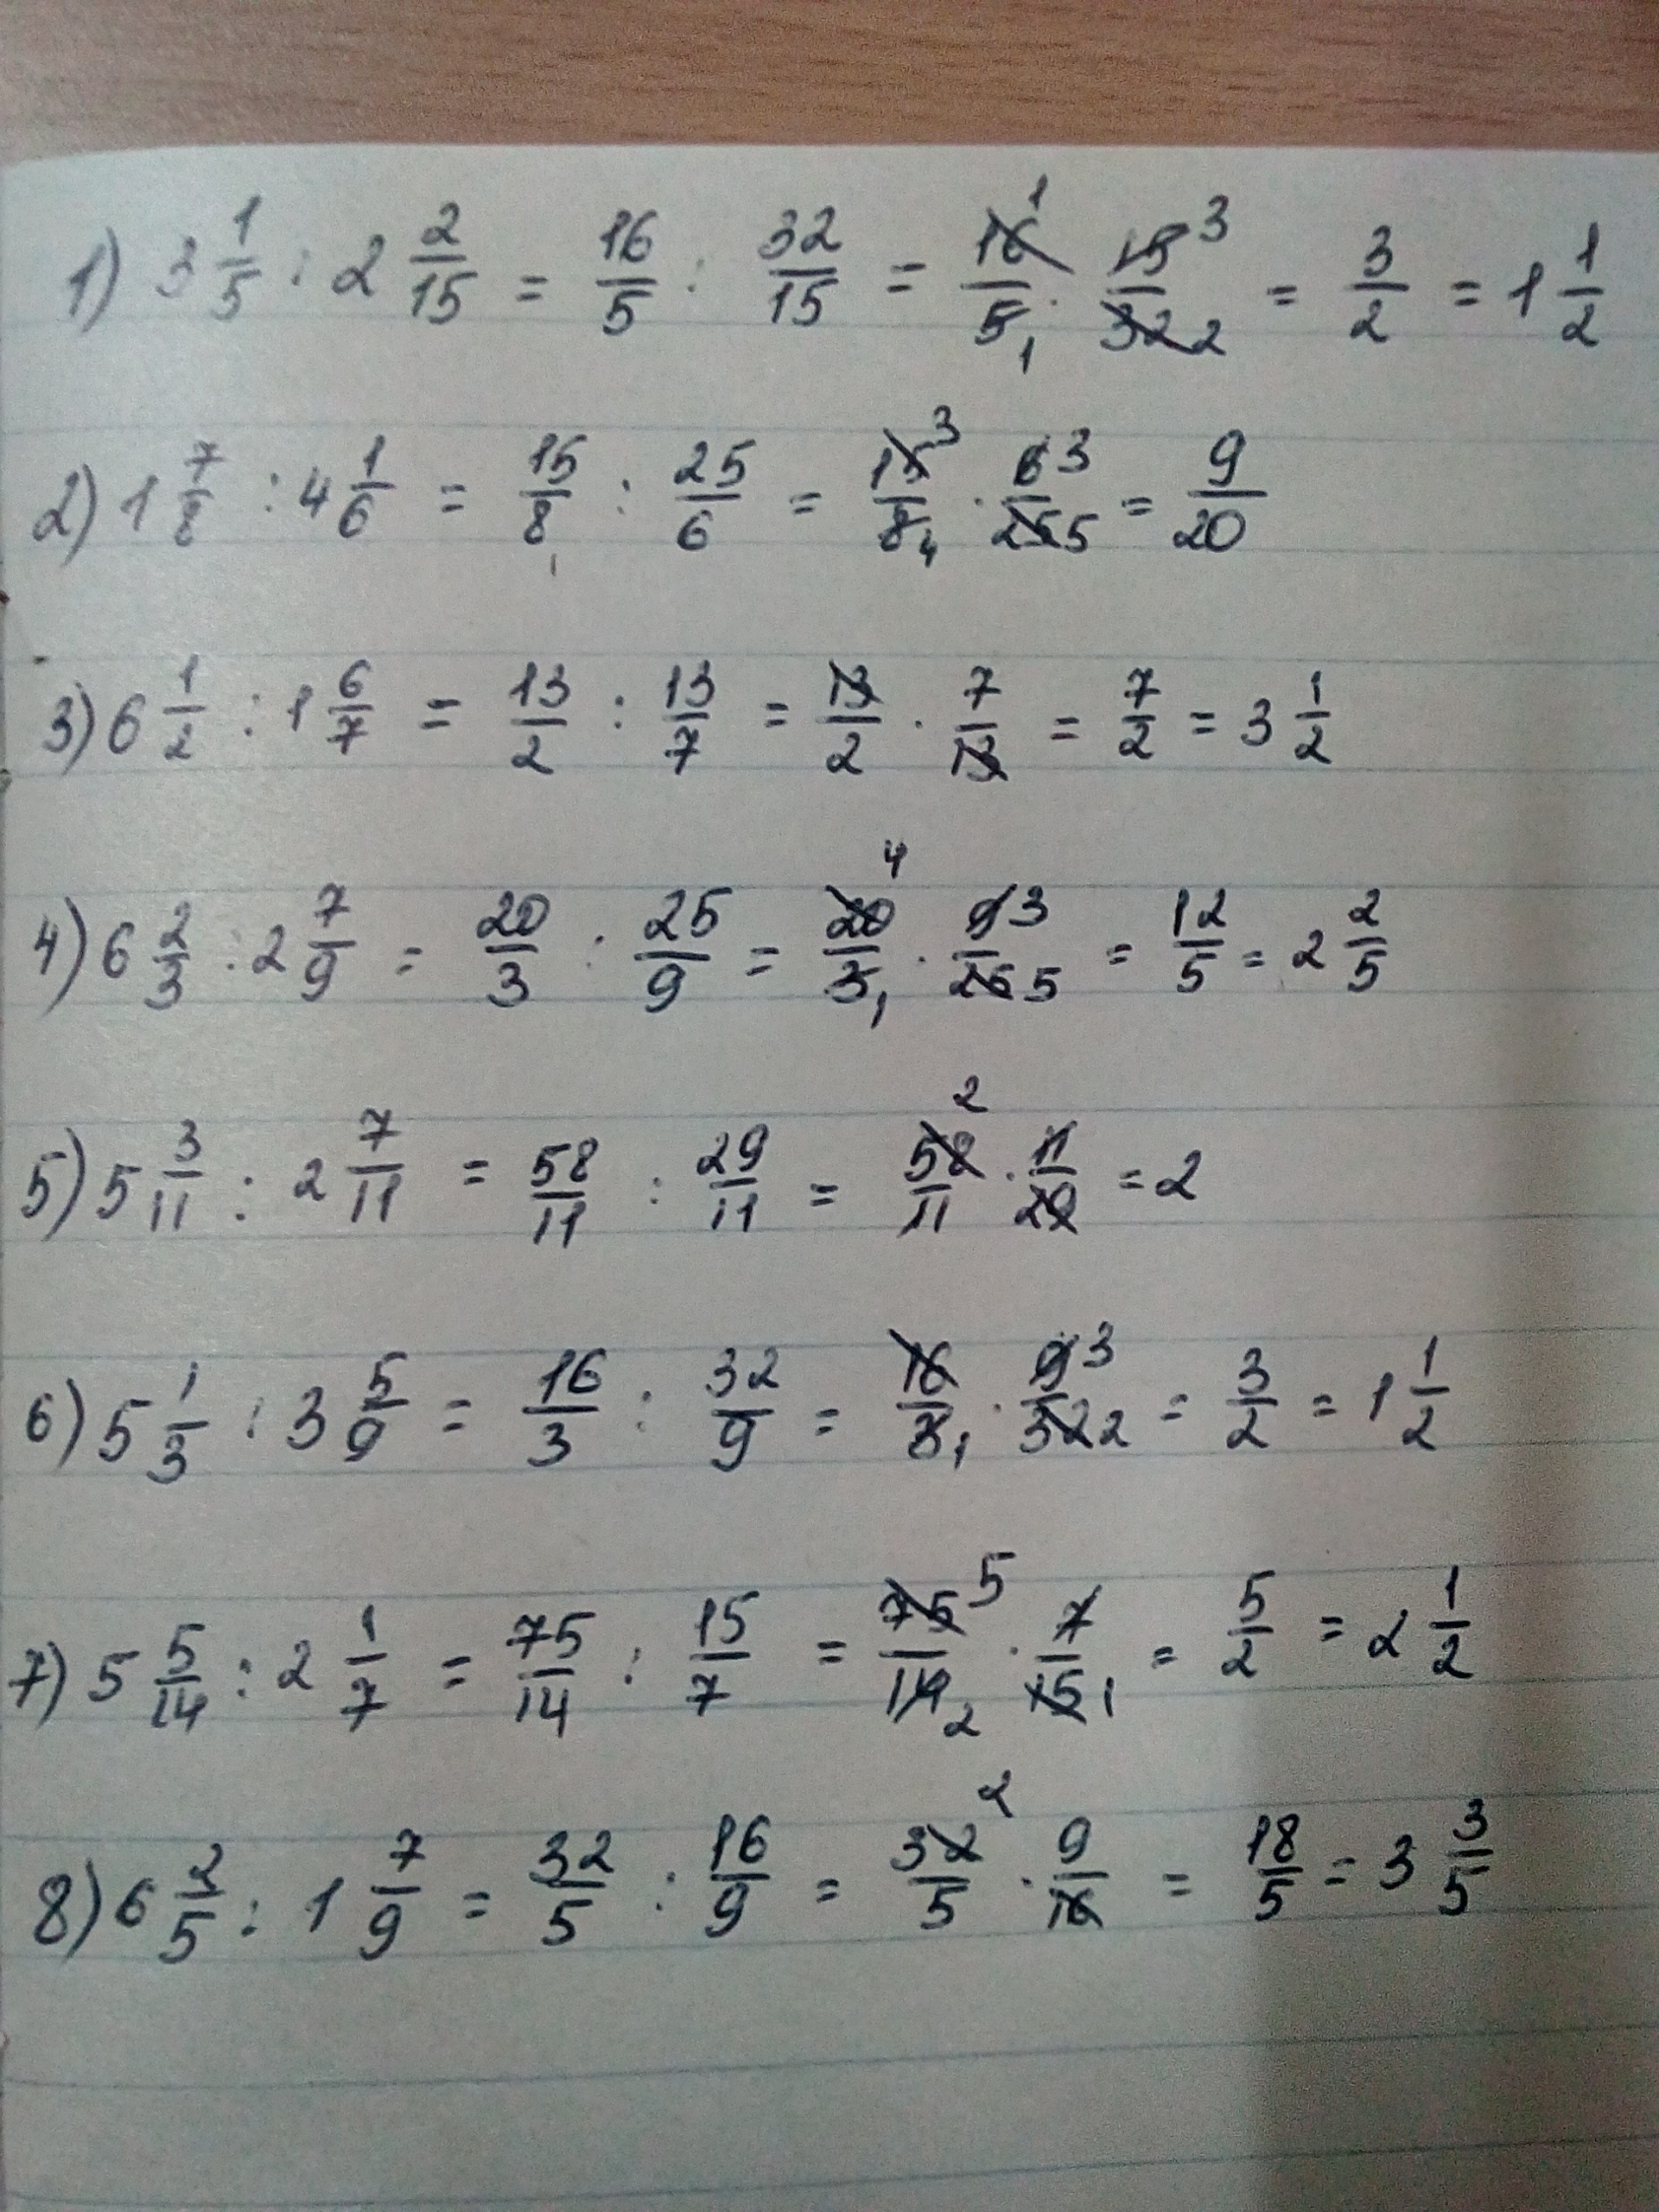 1) 3 1/5 : 2 2/15 = 16/5 : 32/15 = 16 1/5 1 · 15 3/32 2 = 3/2 = 1 1/2
2) 1 7/8 : 4 1/6 = 15/8 : 25/6 = 15 3/8 4 · 6 3/25 5 = 9/20
3) 6 1/2 : 1 6/7 = 13/2 : 13/7 = 13/2 · 7/13 = 7/2 = 3 1/2
4) 6 2/3 : 2 7/9 = 20/3 : 25/9 = 20 4/3 1 · 9 3/25 5 = 12/5 = 2 2/5
5) 5 3/11 : 2 7/11 = 58/11 : 29/11 = 58 2/11 · 11/29 = 2
6) 5 1/3 : 3 5/9 = 16/3 : 32/9 = 16/3 1 · 9 3/32 2 = 3/2 = 1 1/2
7) 5 5/14 : 2 1/7 = 75/14 : 15/7 = 75 5/14 2 · 7/15 1 = 5/2 = 2 1/2
8) 6 2/5 : 1 7/9 = 32/5 : 16/9 = 32 2/5 · 9/16 = 18/5 = 3 3/5